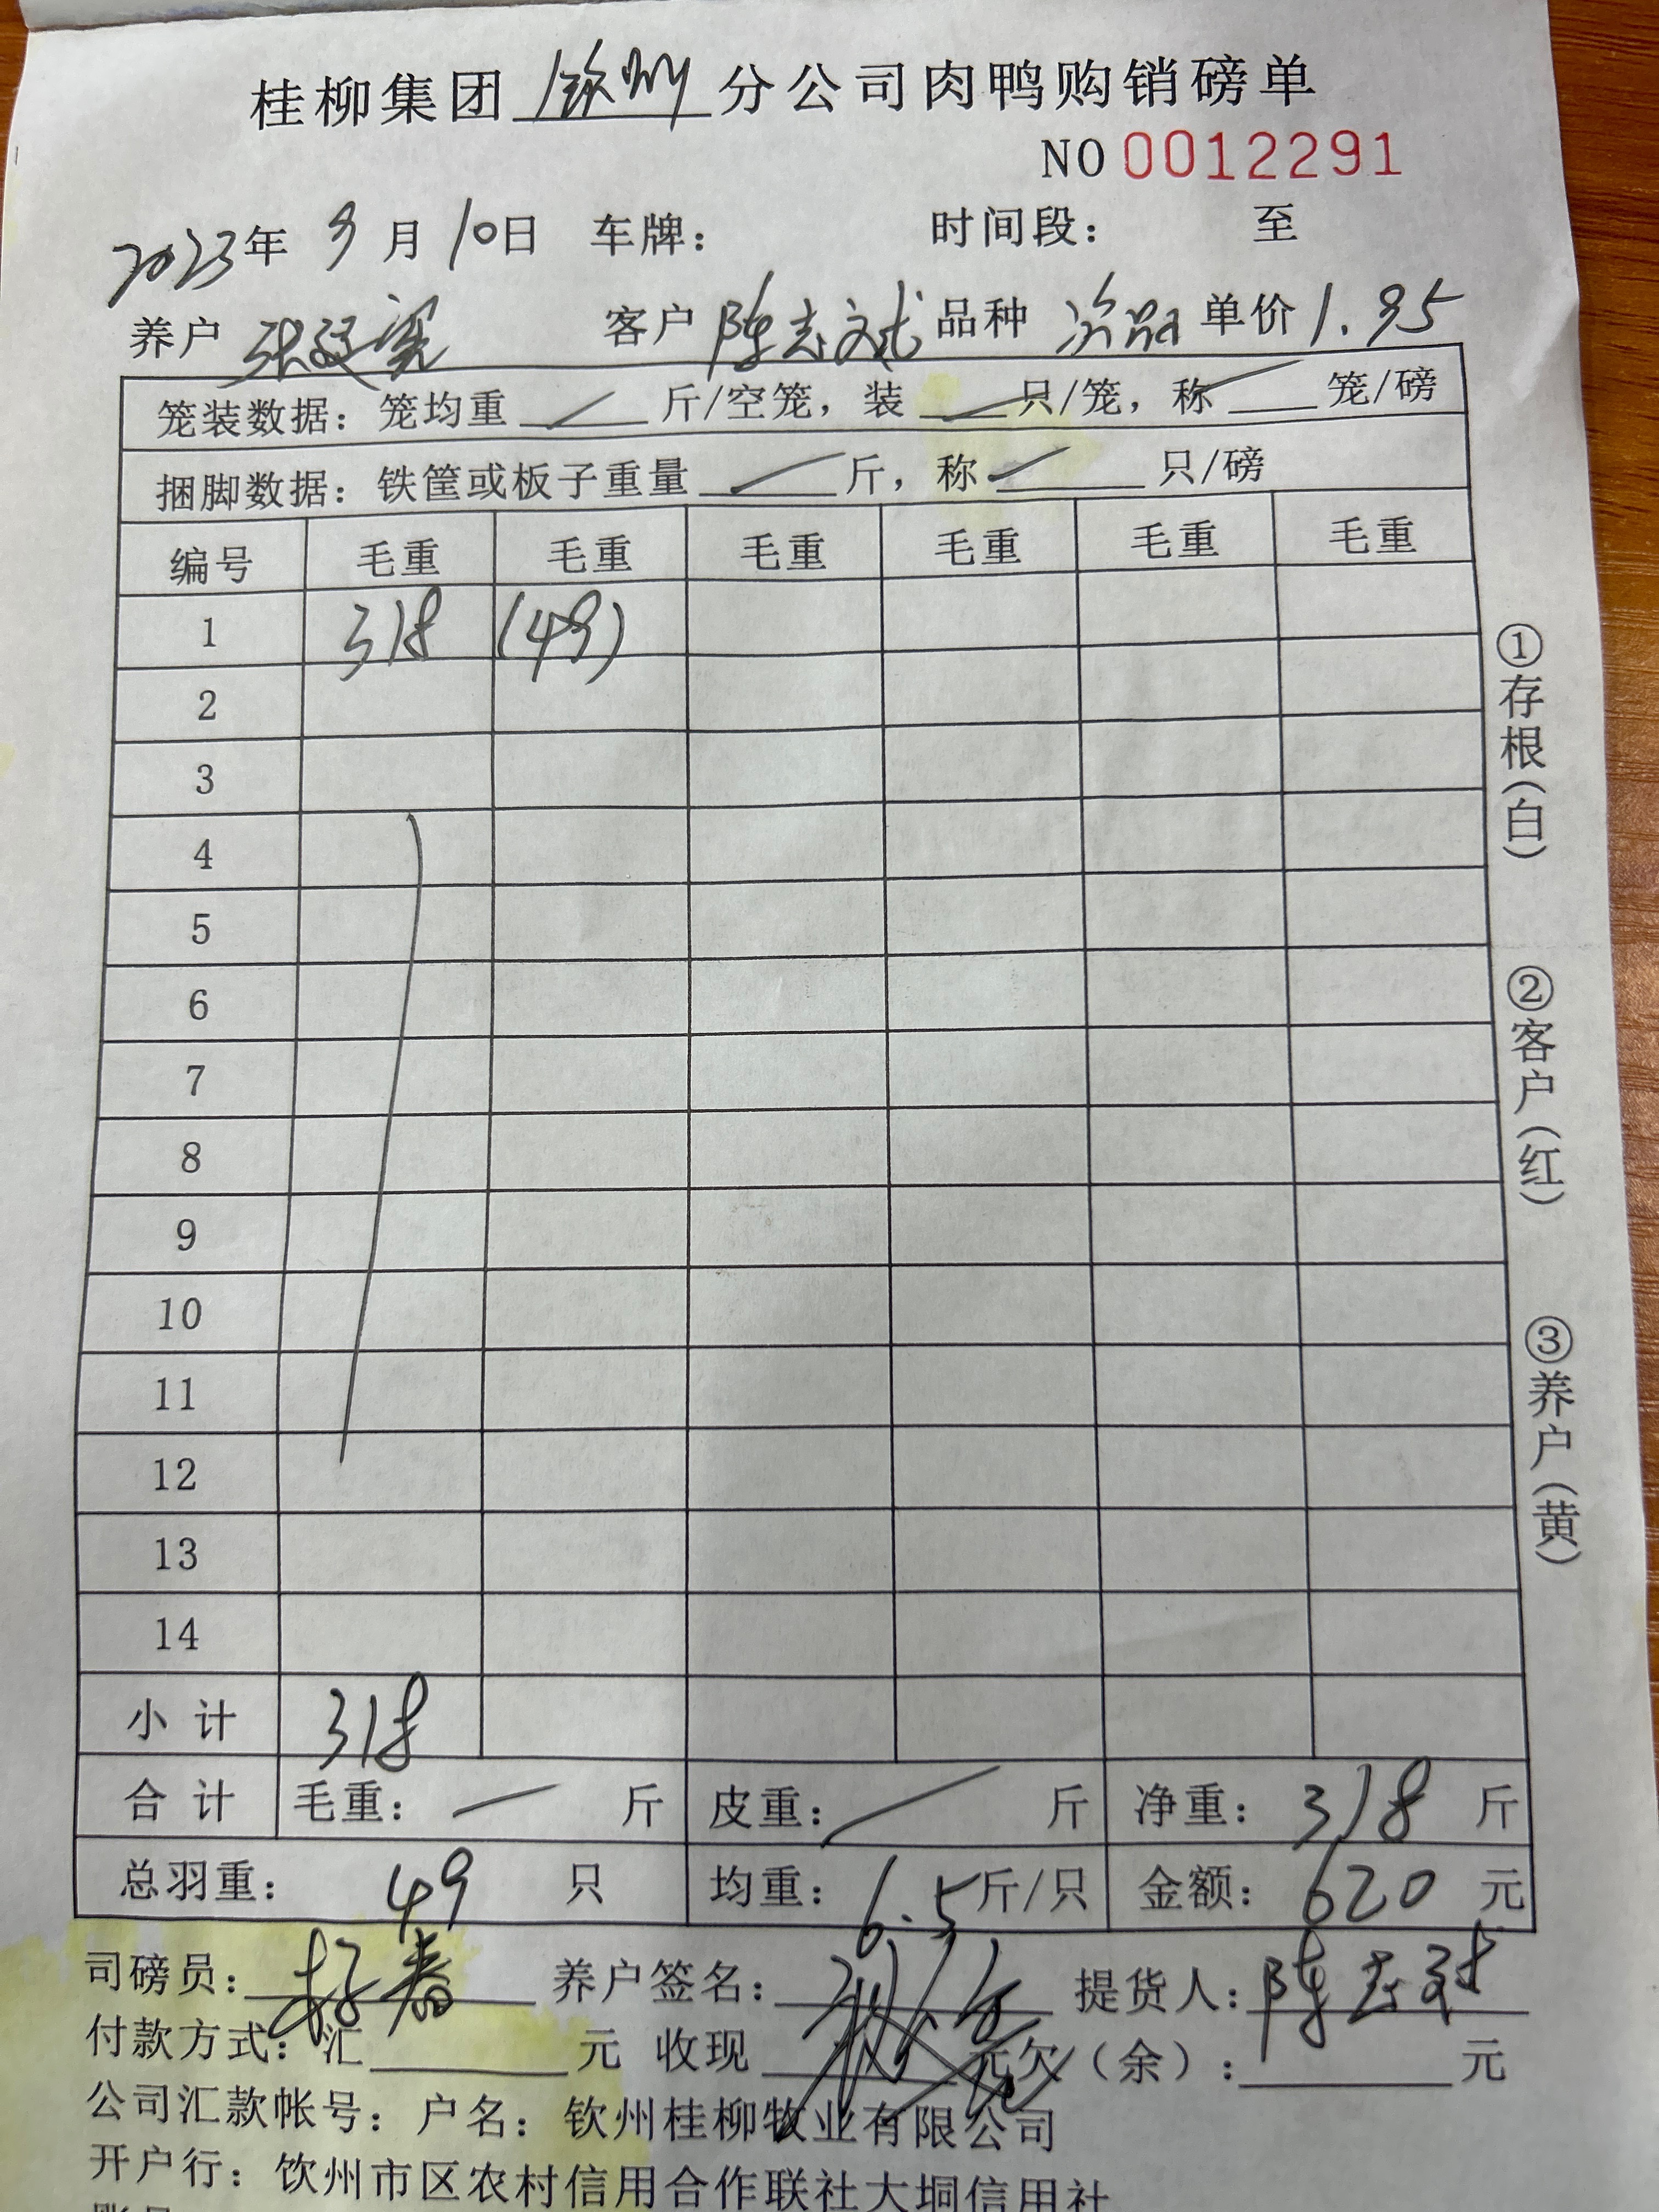 桂柳集团 钦州 分公司肉鸭购销磅单
NO 0012291
2023年 9月 10日 车牌： 时间段： 至
养户 张廷宪 客户 陈志斌 品种 次品 单价 1.95
笼装数据：笼均重 斤/空笼，装 只/笼，称 笼/磅
捆脚数据：铁筐或板子重量 斤，称 只/磅
编号 毛重 毛重 毛重 毛重 毛重 毛重
1 318 (49)
2
3
4
5
6
7
8
9
10
11
12
13
14
小计 318
合计 毛重： 斤 皮重： 斤 净重：318 斤
总羽重： 49 只 均重：6.5斤/只 金额：620 元
司磅员： 养户签名： 提货人：陈志斌
付款方式：汇 元 收现 元欠（余）： 元
公司汇款帐号：户名：钦州桂柳牧业有限公司
开户行：钦州市区农村信用合作联社大垌信用社
①存根(白)
②客户(红)
③养户(黄)